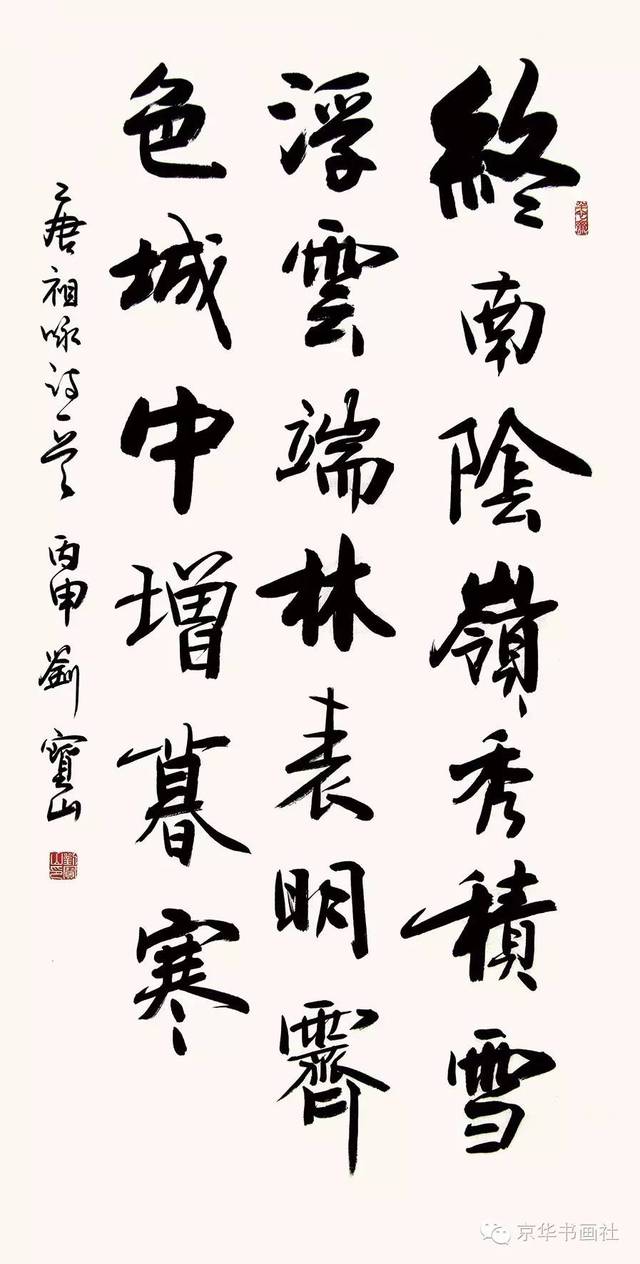 終南陰嶺秀積雪
浮雲端林表明霽
色城中增暮寒
唐祖咏詩一首 丙申 劉寶山
京华书画社